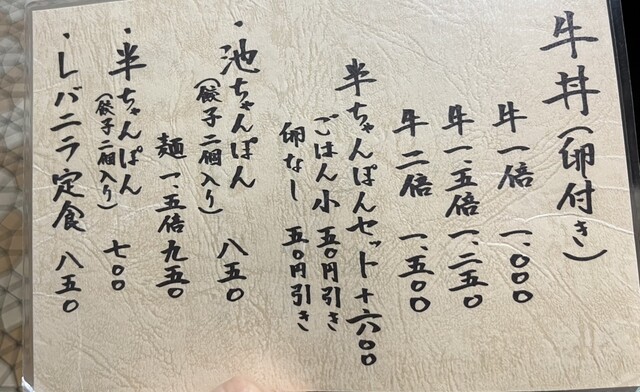 牛丼(卵付き)
牛一倍 一、〇〇〇
牛一、五倍 一、二五〇
牛二倍 一、五〇〇
半ちゃんぽんセット+六〇〇
ごはん小 五〇円引き
卵なし 五〇円引き
・池ちゃんぽん 八五〇
(餃子二個入り)
麺一、五倍 九五〇
・半ちゃんぽん 七〇〇
(餃子二個入り)
・レバニラ定食 八五〇